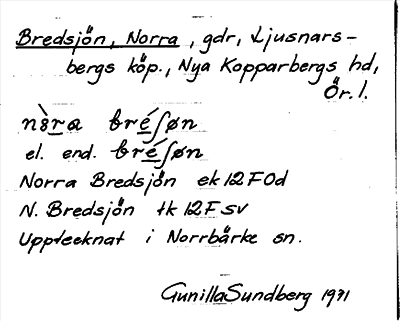 Bredsjön, Norra, gdr, Ljusnars-
bergs köp., Nya Kopparbergs hd,
Ör. l.
nòra bréʃøn
el. end. bréʃøn
Norra Bredsjön ek 12 F 0d
N. Bredsjön tk 12 F SV
Upptecknat i Norrbärke sn.
Gunilla Sundberg 1971